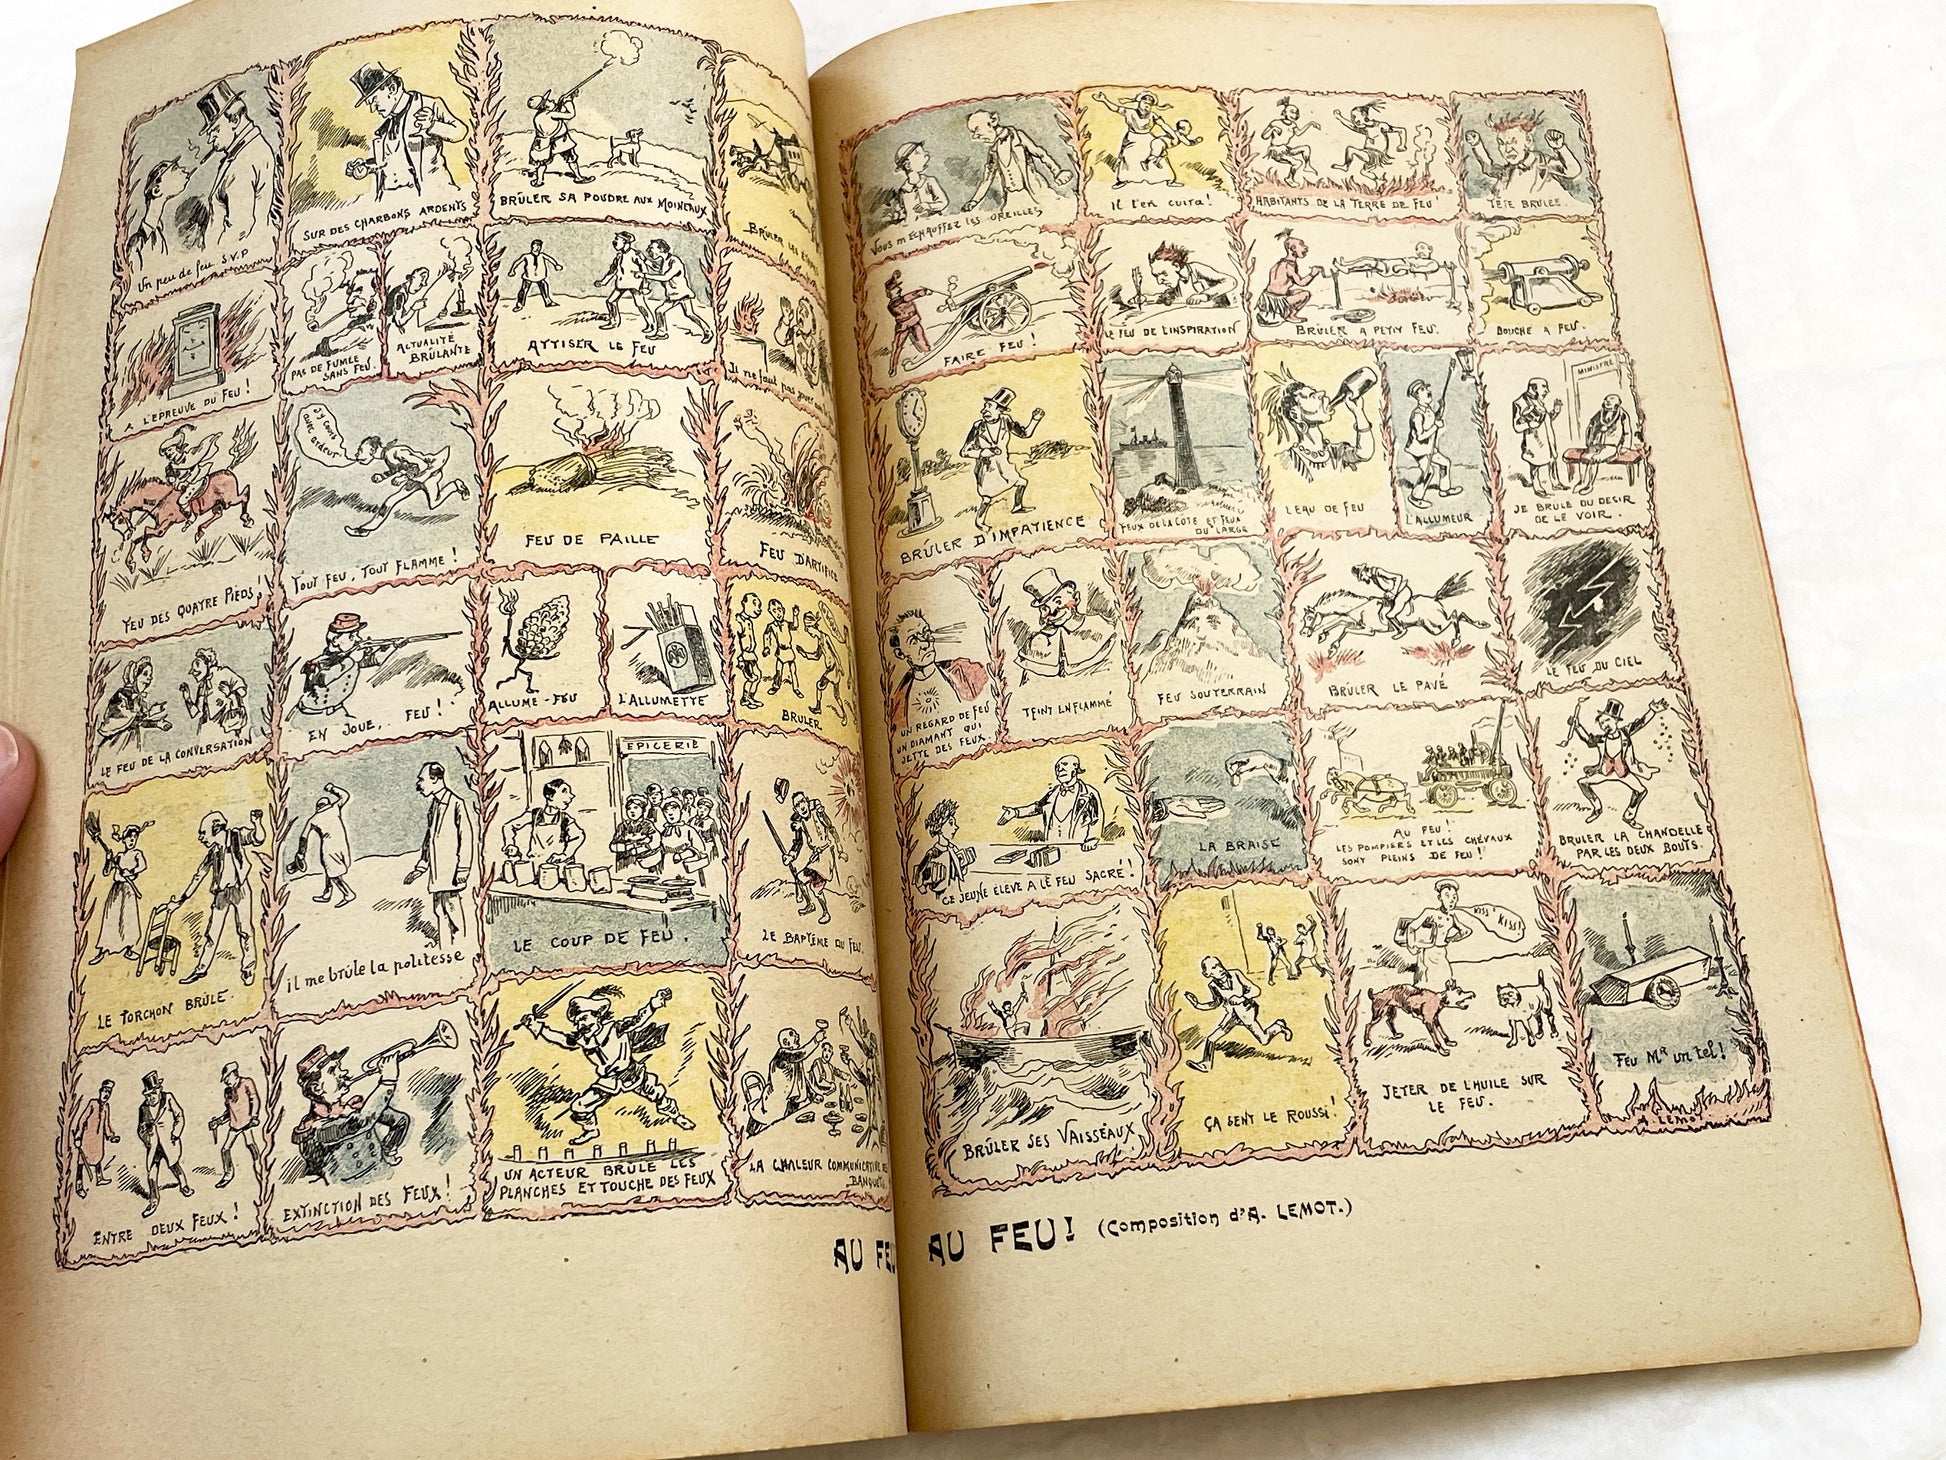 Un peu de feu S.V.P
SUR DES CHARBONS ARDENTS
BRÛLER SA POUDRE AUX MOINEAUX
BRÛLER LES
A L'EPREUVE DU FEU!
PAS DE FUMEE
SANS FEU.
ACTUALITÉ
BRÛLANTE
ATTISER LE FEU
Il ne faut pas jouer
FEU DES QUATRE PIEDS!
J'Y COURS
AVEC ARDEUR
TOUT FEU, TOUT FLAMME!
FEU DE PAILLE
FEU D'ARTIFICE
LE FEU DE LA CONVERSATION
EN JOUE,.. FEU!
ALLUME-FEU
L'ALLUMETTE
BRULER
LE TORCHON BRÛLE.
il me brûle la politesse
EPICERIE
LE COUP DE FEU.
LE BAPTÊME DU FEU.
ENTRE DEUX FEUX!
EXTINCTION DES FEUX!
UN ACTEUR BRÛLE LES
PLANCHES ET TOUCHE DES FEUX
LA CHALEUR COMMUNICATIVE
BANQUET
AU FEU
VOUS M'ECHAUFFEZ LES OREILLES
Il t'en cuira!
HABITANTS DE LA TERRE DE FEU!
TÊTE BRULÉE
FAIRE FEU!
LE FEU DE L'INSPIRATION
BRÛLER A PETIT FEU.
BOUCHE A FEU.
BRÛLER D'IMPATIENCE
FEUX DE LA COTE ET FEUX
DU LARGE
L'EAU DE FEU
L'ALLUMEUR
MINISTRE
JE BRULE DU DESIR
DE LE VOIR.
UN REGARD DE FEU
UN DIAMANT QUI
JETTE DES FEUX.
TEINT ENFLAMMÉ
FEU SOUTERRAIN
BRÛLER LE PAVÉ
LE FEU DU CIEL
CE JEUNE ELEVE A LE FEU SACRÉ!
LA BRAISE
AU FEU!
LES POMPIERS ET LES CHEVAUX
SONT PLEINS DE FEU!
BRULER LA CHANDELLE
PAR LES DEUX BOUTS.
BRÛLER SES VAISSEAUX
ÇA SENT LE ROUSSI!
KISS! KISS!
JETER DE L'HUILE SUR
LE FEU.
FEU Mr un tel!
A. LEMOT
AU FEU! (Composition d'A. LEMOT.)